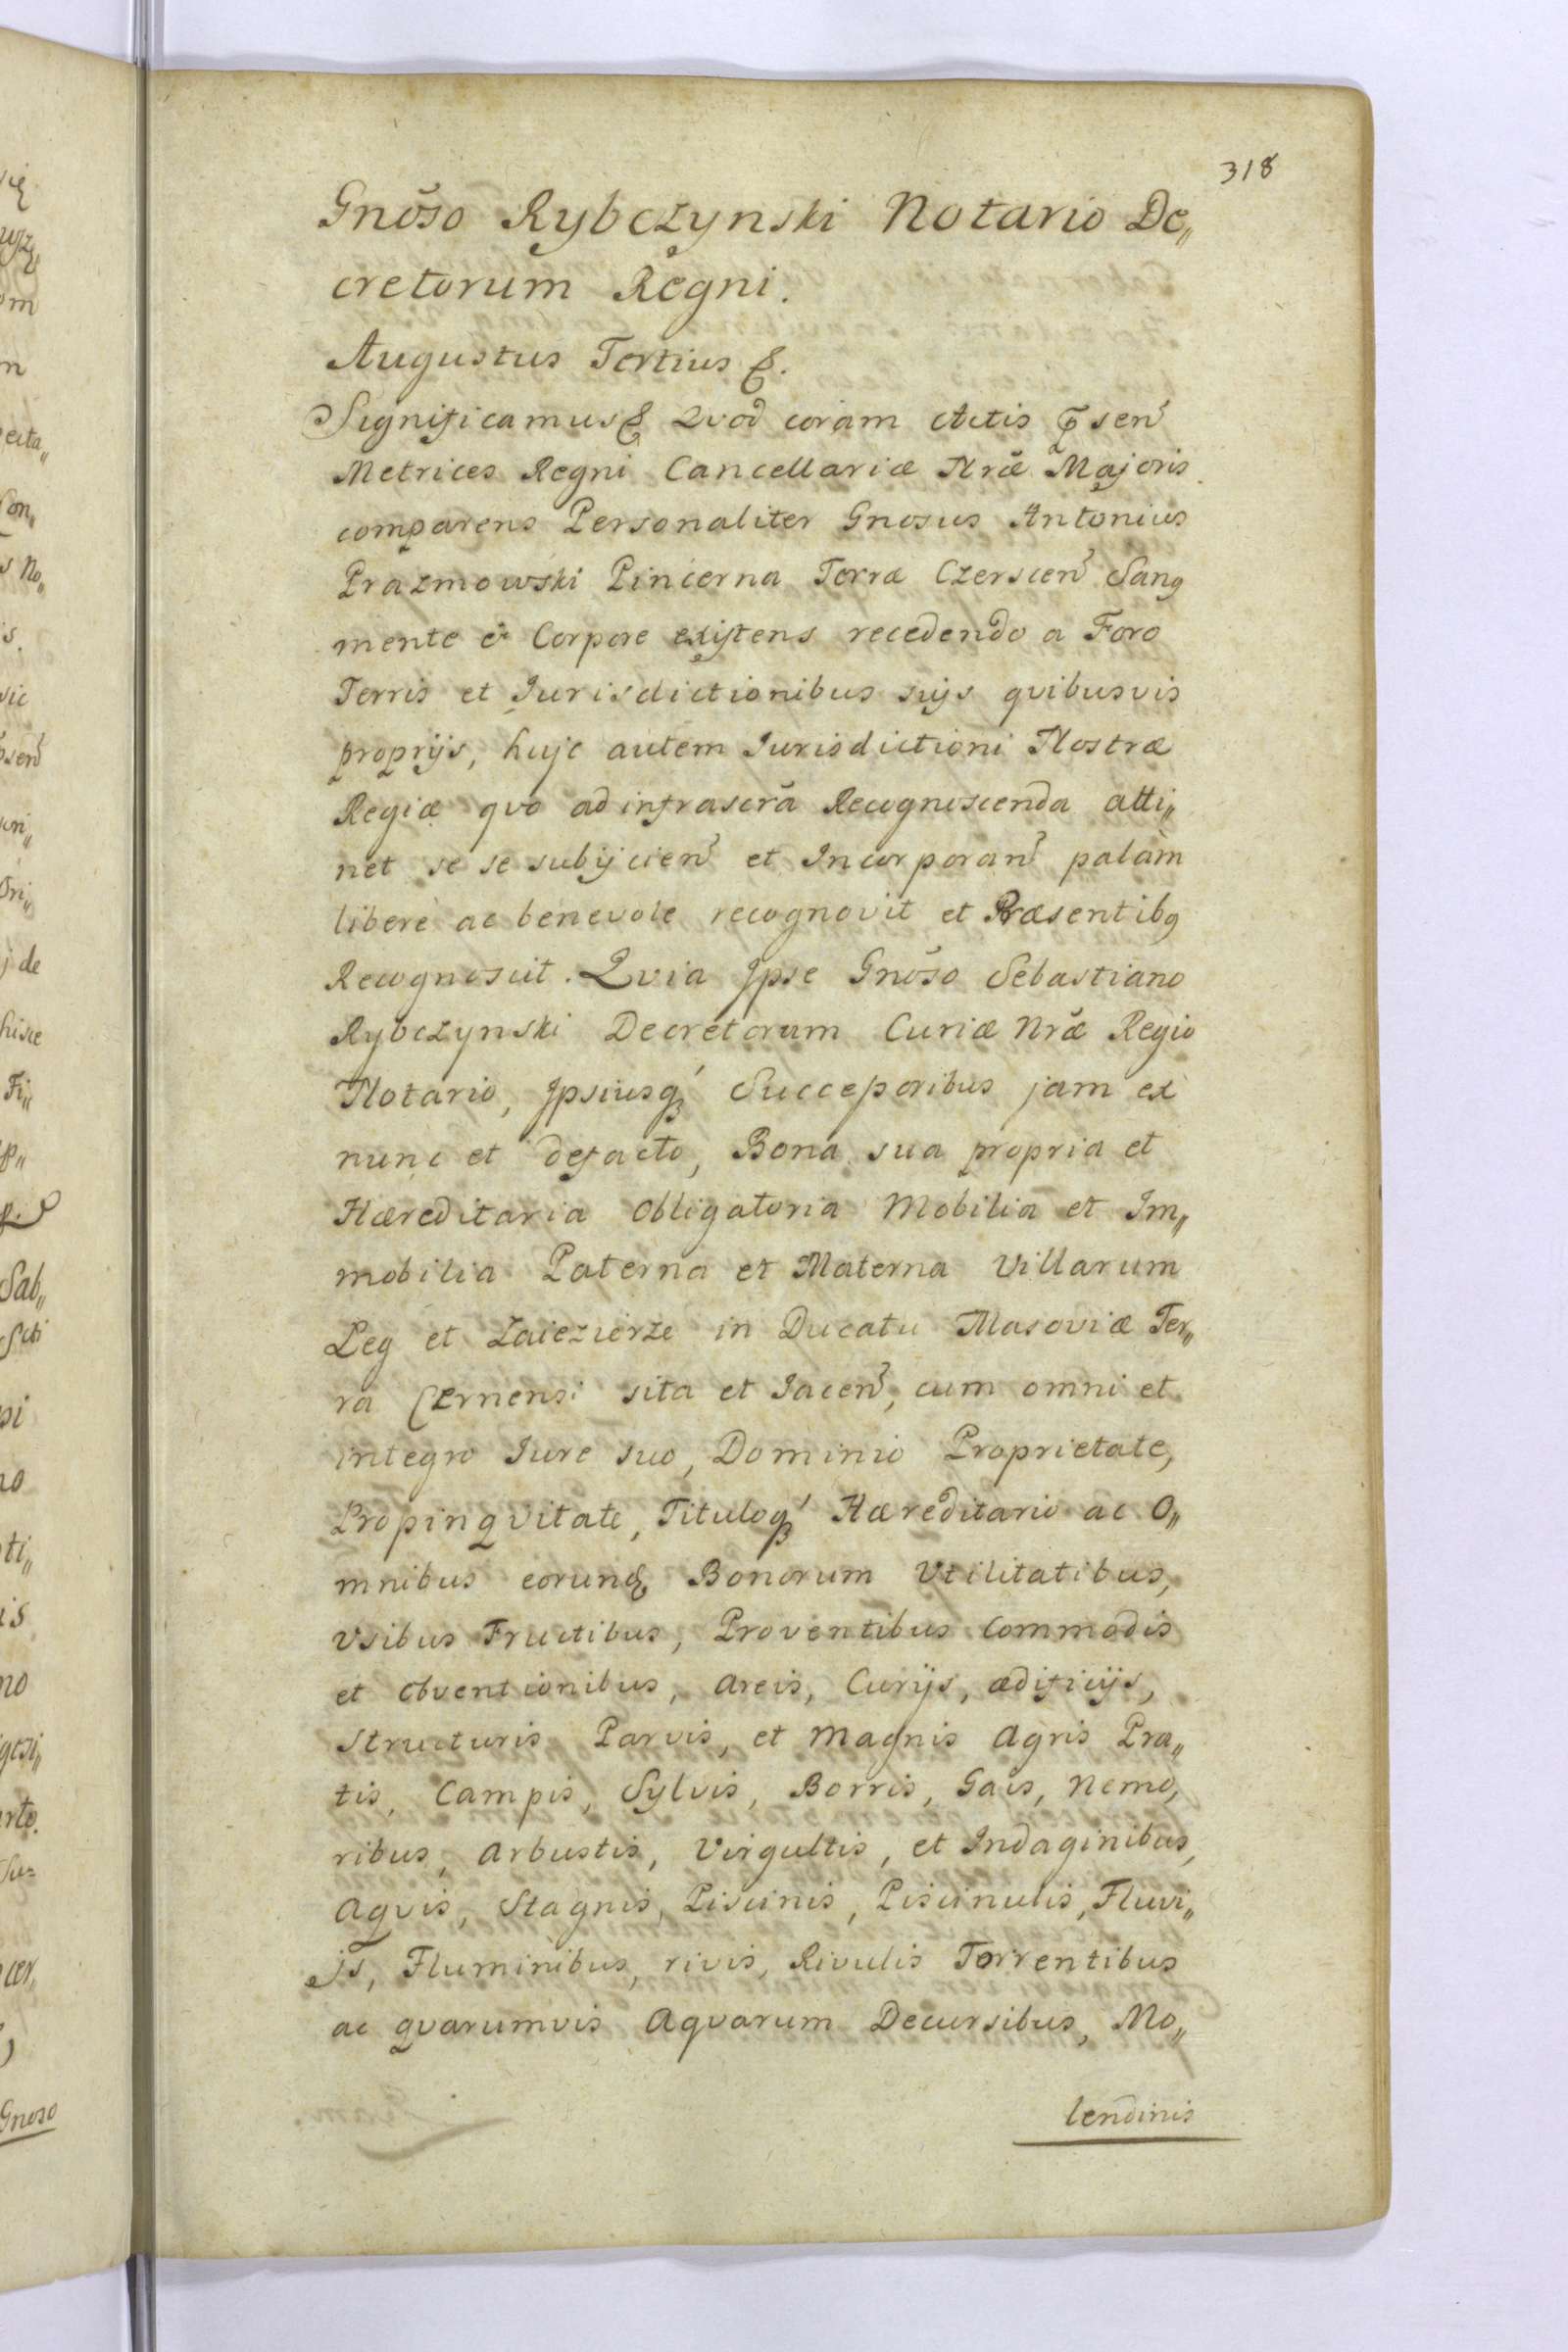 318
Gnõso Rybczynski Notario De„
cretorum Regni.
Augustus Tertius &.
Significamus& Qvod coram Actis p̃sen̉
Metrices Regni Cancellariæ Nræ̃ Majoris
comparens Personaliter Gnosus Antonius
Prazmowski Pincerna Terræ Czerscen̉ Sang
mente & Corpore exijtens recedendo a Foro
Terris et Jurisdictionibus suijs qvibusvis
proprijs, hujc autem Jurisdictioni Nostræ
Regiæ qvo ad infrascrã Recognoscenda atti„
net se se subijcien̉ et Incorporan̉ palàm
liberè ac benevole recognovit et Præsentibg
Recognoscit. Qvia Jpse Gnõso Sebastiano
Rybczynski Decretorum Curiæ Nræ̃ Regio
Notario, Jpsiusq́ Successoribus jam ex
nunc et defacto, Bona sua propria et
Hæreditaria Obligatoria Mobilia et Im„
mobilia Paterna et Materna Villarum
Leg et Zaiezierze in Ducatu Masoviæ Ter„
ra Czrnensi sita et Jacen̉, cum omni et
integro Jure suo, Dominio Proprietate,
Propinqvitate, Tituloq́ Hæreditario ac O„
mnibus eorund Bonorum Vtilitatibus,
Vsibus Fructibus, Proventibus Commodis
et obventionibus, Areis, Curijs, ædificijs,
Structuris Parvis, et Magnis Agris Pra„
tis, Campis, Sylvis, Borris, Gais, Nemo,
ribus, Arbustis, Virgultis, et Indaginibus,
Aqvis, Stagnis, Piscinis, Piscinulis, Fluvi„
js, Fluminibus, rivis, Rivulis Torrentibus
ac qvarumvis Aqvarum Decursibus, Mo„
lendinis